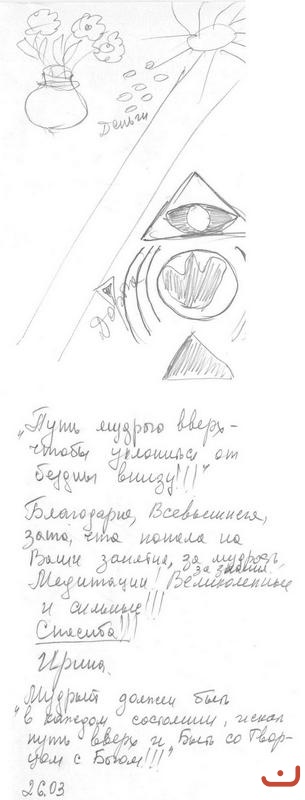 Деньги
Дорога
"Путь мудрого вверх -
чтобы уклониться от
бездны внизу!!!"
Благодарна, Всевышнего,
зато, что попала на
Ваши занятия, за мудрость,
за знания.
Медитации! Великолепные
и сильные!!!
Спасибо!!!
Ирина.
"Мудрый должен быть
в каждом состоянии, искать
путь вверх и Быть со Твор-
цом с Богом!!!"
26.03